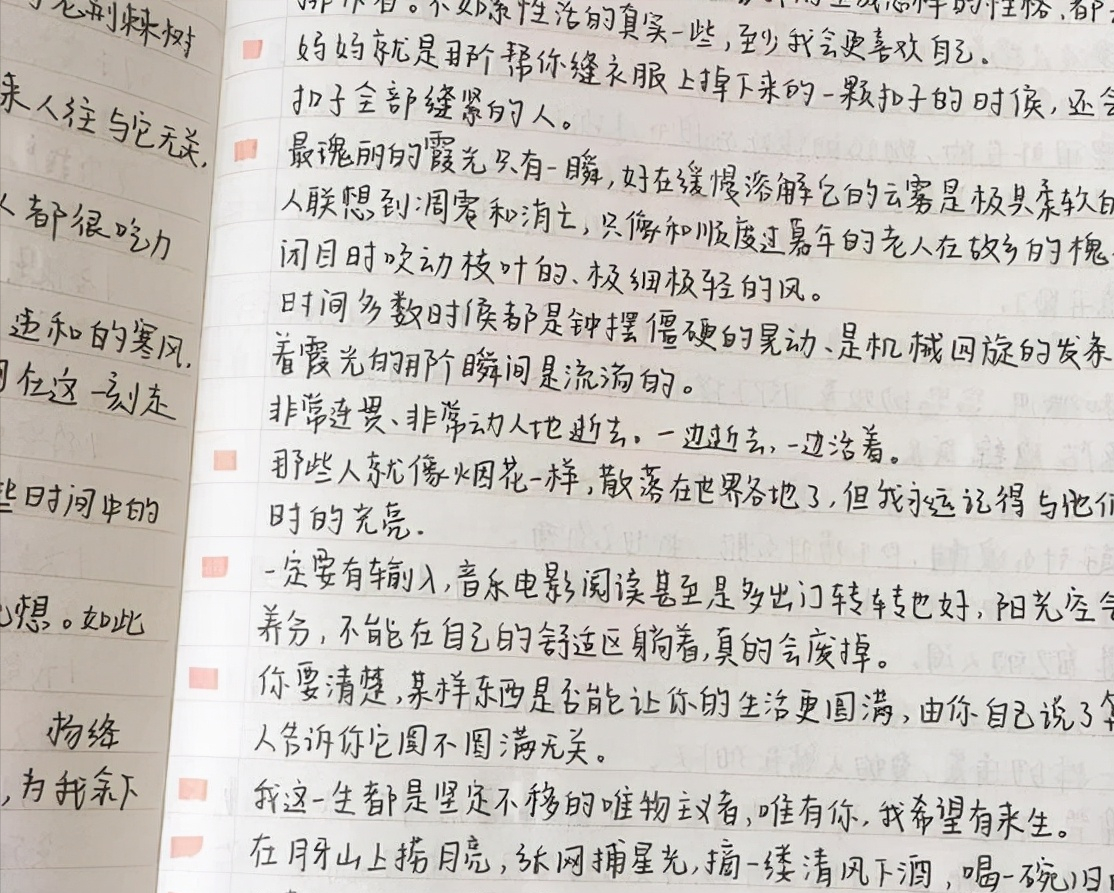 老荆棘树
来人往与它无关,
人都很吃力
违和的寒风,
在这一刻走
些日时间中的
想。如此
杨绛
,为我余下
不如索性活的真实一些,至少我会更喜欢自己。
妈妈就是那个帮你缝衣服上掉下来的一颗扣子的时候,还会
扣子全部缝紧的人。
最瑰丽的霞光只有一瞬,好在缓慢溶解它的云雾是极具柔软的
人联想到凋零和消亡,只像和顺度过暮年的老人在故乡的槐
闭目时吹动枝叶的、极细极轻的风。
时间多数时候都是钟摆僵硬的晃动、是机械回旋的发条
着霞光的那个瞬间是流淌的。
非常连贯、非常动人地逝去。一边逝去,一边活着。
那些人就像烟花一样,散落在世界各地了,但我永远记得与他们
时的光亮.
一定要有输入,音乐电影阅读甚至是多出门转转也好,阳光空会
养分,不能在自己的舒适区躺着,真的会废掉。
你要清楚,某样东西是否能让你的生活更圆满,由你自己说了算
人告诉你它圆不圆满无关。
我这一生都是坚定不移的唯物主义者,唯有你,我希望有来生。
在月牙山上捞月亮,张网捕星光,摘一缕清风下酒,喝一碗旧